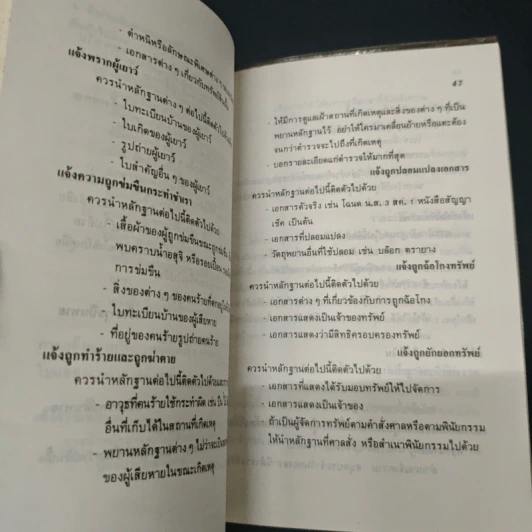 - ตำหนิหรือลักษณะพิเศษต่าง ๆ
- เอกสารต่าง ๆ เกี่ยวกับทรัพย์สิน
แจ้งพรากผู้เยาว์
ควรนำหลักฐานต่าง ๆ ต่อไปนี้ติดตัวไป
- ใบทะเบียนบ้านของผู้เยาว์
- ใบเกิดของผู้เยาว์
- รูปถ่ายผู้เยาว์
- ใบสำคัญอื่น ๆ ของผู้เยาว์
แจ้งความถูกข่มขืนกระทำชำเรา
ควรนำหลักฐานต่อไปนี้ติดตัวไปด้วย
- เสื้อผ้าของผู้ถูกข่มขืนขณะถูกข่มขืน
พบคราบน้ำอสุจิ หรือรอยเปื้อน
การข่มขืน
- สิ่งของต่าง ๆ ของคนร้ายที่ตกอยู่
- ใบทะเบียนบ้านของผู้เสียหาย
- ที่อยู่ของคนร้ายรูปถ่ายคนร้าย
แจ้งถูกทำร้ายและถูกฆ่าตาย
ควรนำหลักฐานต่อไปนี้ติดตัวไปด้วย
- อาวุธที่คนร้ายใช้กระทำผิด เช่น ปืน
อื่นที่เก็บได้ในสถานที่เกิดเหตุ
- พยานหลักฐานต่าง ๆ ไม่ว่าจะเป็น
ของผู้เสียหายในขณะเกิดเหตุ
47
- ให้มีการดูแลเฝ้าสถานที่เกิดเหตุและสิ่งของต่าง ๆ ที่เป็น
พยานหลักฐานไว้ อย่าให้ใครมาเคลื่อนย้ายหรือแตะต้อง
จนกว่าตำรวจจะไปถึงที่เกิดเหตุ
- บอกรายละเอียดแก่ตำรวจให้มากที่สุด
แจ้งถูกปลอมแปลงเอกสาร
ควรนำหลักฐานต่อไปนี้ติดตัวไปด้วย
- เอกสารตัวจริง เช่น โฉนด น.ส. 3 สค. 1 หนังสือสัญญา
เช็ค เป็นต้น
- เอกสารที่ปลอมแปลง
- วัตถุพยานอื่นที่ใช้ปลอม เช่น บล๊อก ตรายาง
แจ้งถูกฉ้อโกงทรัพย์
ควรนำหลักฐานต่อไปนี้ติดตัวไปด้วย
- เอกสารต่าง ๆ ที่เกี่ยวข้องกับการถูกฉ้อโกง
- เอกสารแสดงเป็นเจ้าของทรัพย์
- เอกสารแสดงว่ามีสิทธิครอบครองทรัพย์
แจ้งถูกยักยอกทรัพย์
ควรนำหลักฐานต่อไปนี้ติดตัวไปด้วย
- เอกสารที่แสดงได้รับมอบทรัพย์ให้ไปจัดการ
- เอกสารแสดงเป็นเจ้าของ
- ถ้าเป็นผู้จัดการทรัพย์ตามคำสั่งศาลหรือตามพินัยกรรม
ให้นำหลักฐานที่ศาลสั่ง หรือสำเนาพินัยกรรมไปด้วย